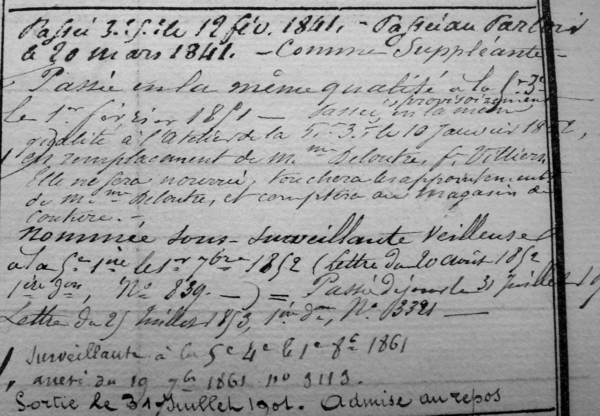 Passée 3.e S.le 12 fév. 1841. - Passée au Parloir
le 20 mars 1841. - Comme Suppléante -
Passée en la même qualité à la 5.e 3.e
provisoirement
le 1er février 1851 - Passée, en la même
qualité à l'Atelier de la 5.e 3.e le 10 Janvier 1852,
en remplacement de Mme Deloutre, f. Villiers
Elle ne sera nourrie, touchera les appointements
de Mme Deloutre, et comptera au magasin de
Couture. -
nommée sous-surveillante Veilleuse
à la 5e 1ère le 1er 7bre 1852 (Lettre du 20 août 1852
1ère don, No 839. -) = Passée de jour le 31 Juillet
Lettre du 25 Juillet 1853, 1ère don, No. 13321 -
Surveillante à la 5e 4e le 1e 8e 1861
arrêté du 19 7br 1861 no 3113.
Sortie le 31 Juillet 1901. Admise au repos